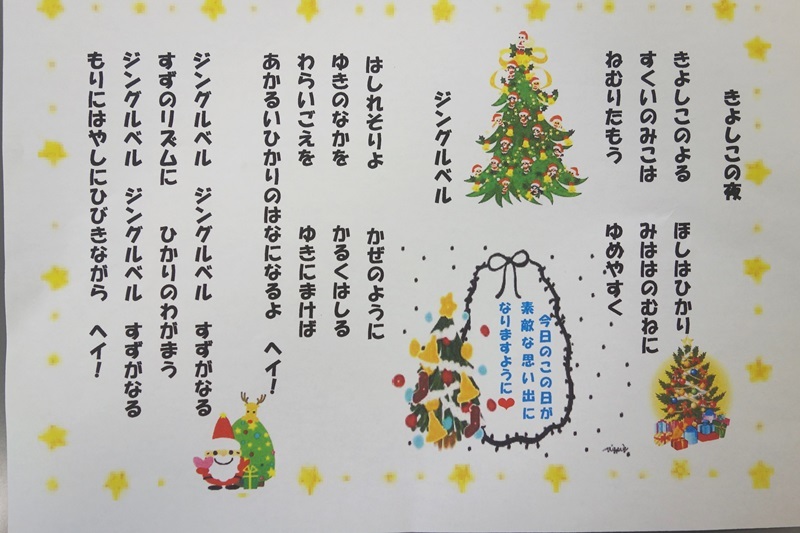 きよしこの夜
きよしこのよる　ほしはひかり
すくいのみこは　みははのむねに
ねむりたもう　ゆめやすく
ジングルベル
はしれそりよ　かぜのように
ゆきのなかを　かるくはしる
わらいごえを　ゆきにまけば
あかるいひかりのはなになるよ　ヘイ！
ジングルベル　ジングルベル　すずがなる
すずのリズムに　ひかりのわがまう
ジングルベル　ジングルベル　すずがなる
もりにはやしにひびきながら　ヘイ！
今日のこの日が
素敵な思い出に
なりますように❤